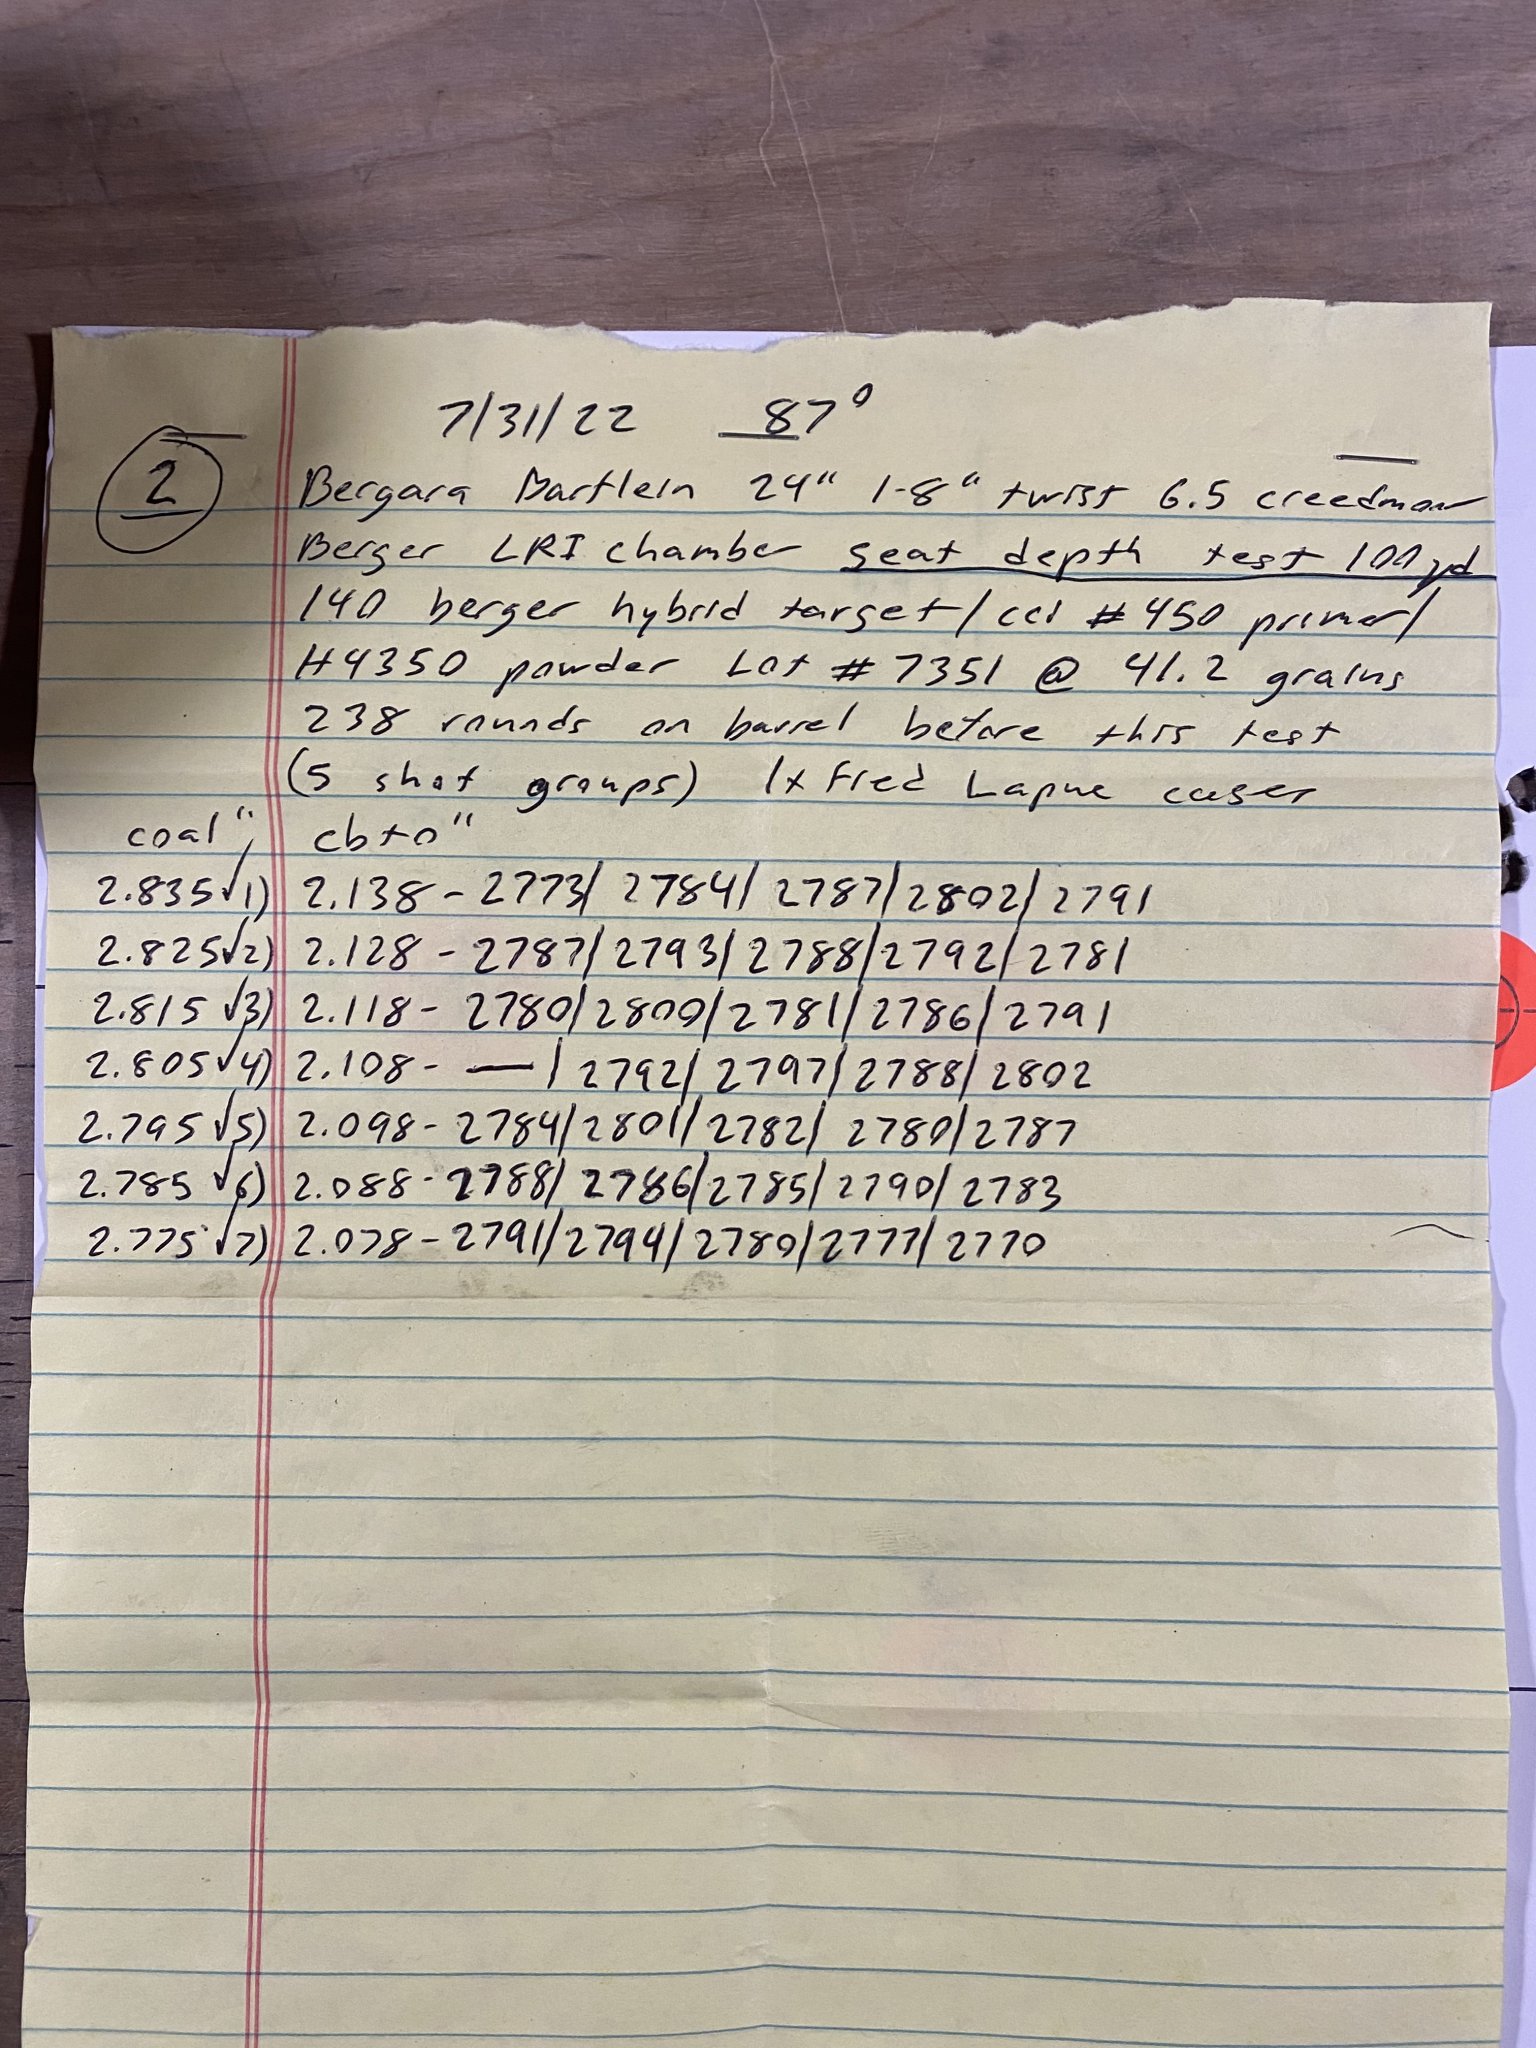 7/31/22 87°
2 Bergara Bartlein 24" 1-8" twist 6.5 creedmoor
Berger LRI chamber seat depth test 100yd
140 berger hybrid target/ cci #450 primer/
H4350 powder Lot #7351 @ 41.2 grains
238 rounds on barrel before this test
(5 shot groups) 1x fired Lapua cases
coal" cbto"
2.835 √ 1) 2.138 - 2773/ 2784/ 2787/ 2802/ 2791
2.825 √ 2) 2.128 - 2787/ 2793/ 2788/ 2792/ 2781
2.815 √ 3) 2.118 - 2780/ 2800/ 2781/ 2786/ 2791
2.805 √ 4) 2.108 - — / 2792/ 2797/ 2788/ 2802
2.795 √ 5) 2.098 - 2784/ 2801/ 2782/ 2780/ 2787
2.785 √ 6) 2.088 - 2788/ 2786/ 2785/ 2790/ 2783
2.775 √ 7) 2.078 - 2791/ 2794/ 2780/ 2777/ 2770